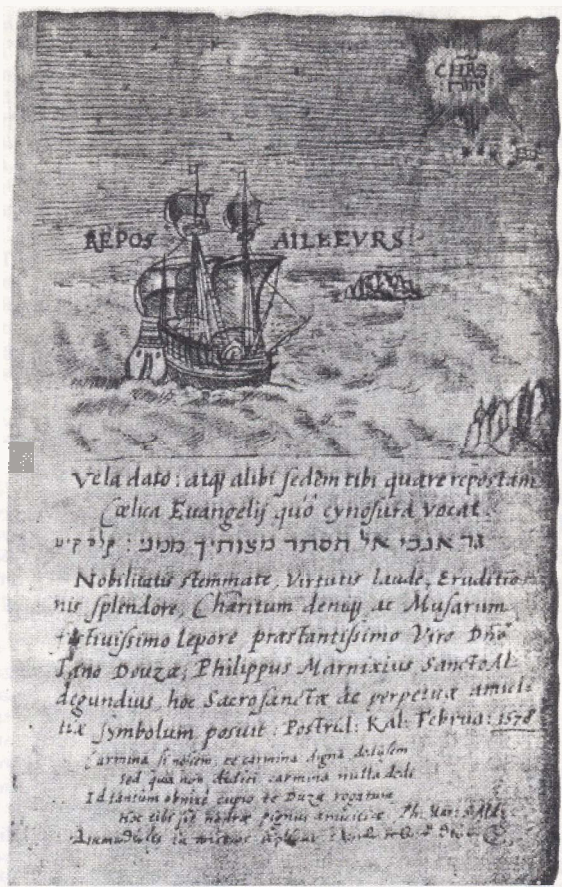 CHRS
REPOS AILLEVRS
Vela dato: atqꝫ alibi sedem tibi quære repostam
Cœlica Euangelij quò cynosura vocat.
גר אנכי אל תסתר מצותיך ממני :
Nobilitatis stemmate, Virtutis laude, Eruditio-
nis splendore, Charitum denique ac Musarum
festiuissimo lepore præstantissimo Viro Dno
Iano Douzæ, Philippus Marnixius Sancto Al-
degundius, hoc Sacrosanctæ ac perpetuæ amici-
tiæ symbolum posuit. Postrid: Kal: Februa: 1578
Carmina si nossem, te carmina digna dedissem
sed quia non didici carmina nulla dedi
Id tantum cupio te Duza rogatum
Hoc tibi sit nostræ pignus amiciciæ. Ph. Mar: S. Ald: